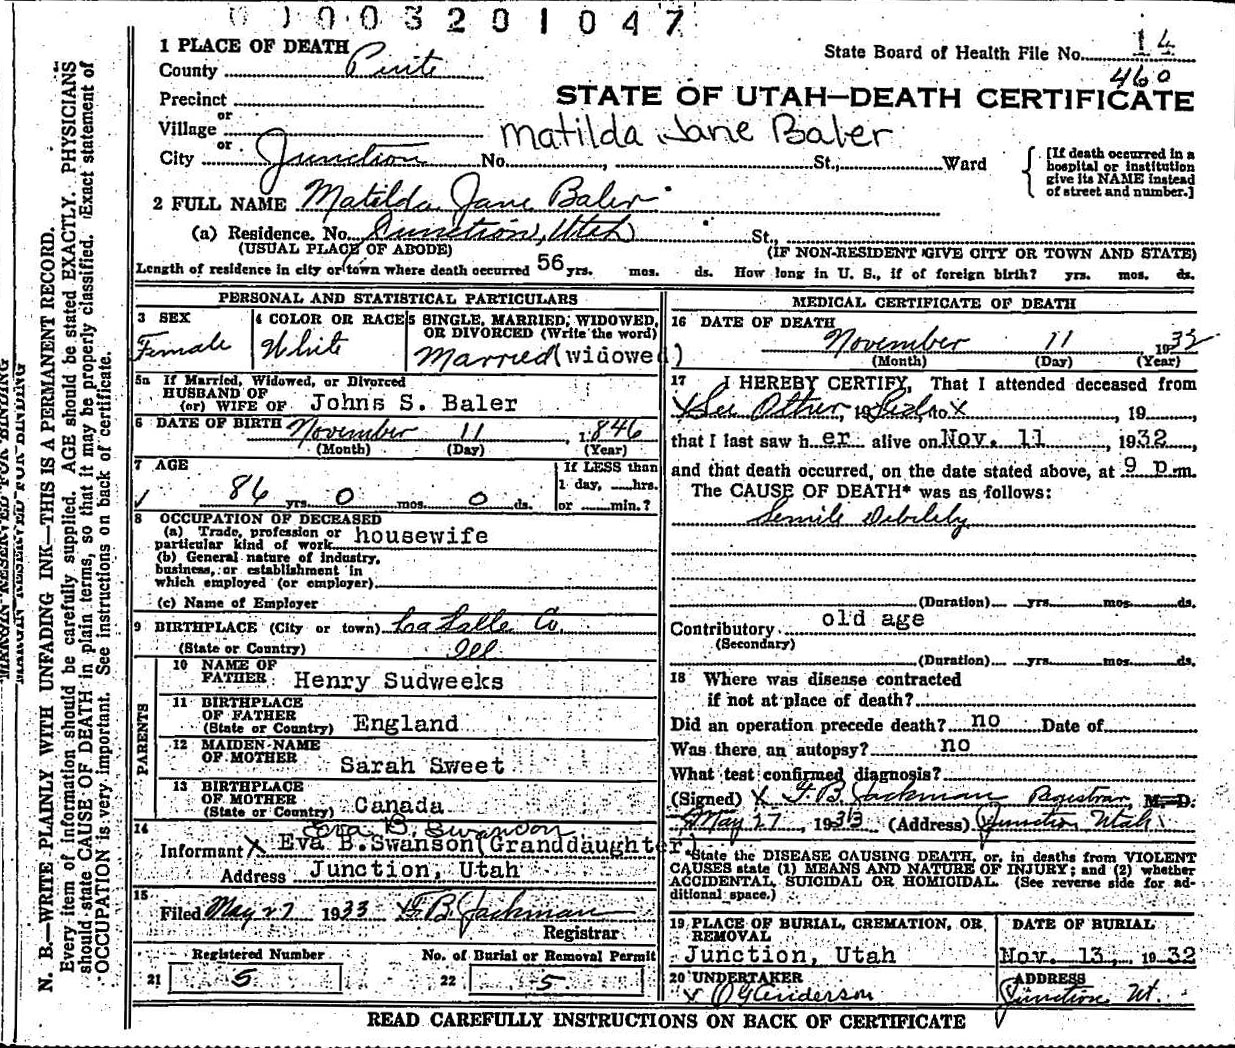 0 0 0 3 2 0 1 0 4 7
1 PLACE OF DEATH
State Board of Health File No. 14
County
460
Precinct
STATE OF UTAH—DEATH CERTIFICATE
or
Village
Matilda Jane Baler
or
City Junction No. , St., Ward
[If death occurred in a
hospital or institution
give its NAME instead
of street and number.]
2 FULL NAME Matilda Jane Baler
(a) Residence. No. Junction, Utah St.,
(USUAL PLACE OF ABODE) (IF NON-RESIDENT GIVE CITY OR TOWN AND STATE)
Length of residence in city or town where death occurred 56 yrs. mos. ds. How long in U. S., if of foreign birth? yrs. mos. ds.
PERSONAL AND STATISTICAL PARTICULARS
3 SEX
Female
4 COLOR OR RACE
White
5 SINGLE, MARRIED, WIDOWED,
OR DIVORCED (Write the word)
Married (widowed)
5a If Married, Widowed, or Divorced
HUSBAND OF
(or) WIFE OF Johns S. Baler
6 DATE OF BIRTH November 11, 1846
(Month) (Day) (Year)
7 AGE
86 yrs. 0 mos. 0 ds.
If LESS than
1 day, hrs.
or min.?
8 OCCUPATION OF DECEASED
(a) Trade, profession or
particular kind of work housewife
(b) General nature of industry,
business, or establishment in
which employed (or employer)
(c) Name of Employer
9 BIRTHPLACE (City or town) La Salle Co.
(State or Country) Ill
PARENTS
10 NAME OF
FATHER Henry Sudweeks
11 BIRTHPLACE
OF FATHER
(State or Country) England
12 MAIDEN NAME
OF MOTHER Sarah Sweet
13 BIRTHPLACE
OF MOTHER
(State or Country) Canada
14
Eva B. Swanson
Informant X Eva B. Swanson (Granddaughter)
Address Junction, Utah
15
Filed May 27 1933 F. B. Jackman
Registrar
Registered Number
21 5
No. of Burial or Removal Permit
22 5
MEDICAL CERTIFICATE OF DEATH
16 DATE OF DEATH
November 11 1932
(Month) (Day) (Year)
17 I HEREBY CERTIFY, That I attended deceased from
X See Other Sid, 19 to X , 19 ,
that I last saw h er alive on Nov. 11 , 1932 ,
and that death occurred, on the date stated above, at 9 p.m.
The CAUSE OF DEATH* was as follows:
Senile Debility
(Duration) yrs. mos. ds.
Contributory old age
(Secondary)
(Duration) yrs. mos. ds.
18 Where was disease contracted
if not at place of death?
Did an operation precede death? no Date of
Was there an autopsy? no
What test confirmed diagnosis?
(Signed) X F. B. Jackman Registrar, M. D.
May 27, 1933 (Address) Junction Utah
*State the DISEASE CAUSING DEATH, or, in deaths from VIOLENT
CAUSES state (1) MEANS AND NATURE OF INJURY; and (2) whether
ACCIDENTAL, SUICIDAL OR HOMICIDAL. (See reverse side for ad-
ditional space.)
19 PLACE OF BURIAL, CREMATION, OR
REMOVAL
Junction, Utah
DATE OF BURIAL
Nov. 13, 1932
20 UNDERTAKER
ADDRESS
Junction Ut.
READ CAREFULLY INSTRUCTIONS ON BACK OF CERTIFICATE
MARGIN RESERVED FOR BINDING
N. B.—WRITE PLAINLY WITH UNFADING INK—THIS IS A PERMANENT RECORD.
Every item of information should be carefully supplied. AGE should be stated EXACTLY. PHYSICIANS
should state CAUSE OF DEATH in plain terms, so that it may be properly classified. Exact statement of
OCCUPATION is very important. See instructions on back of certificate.